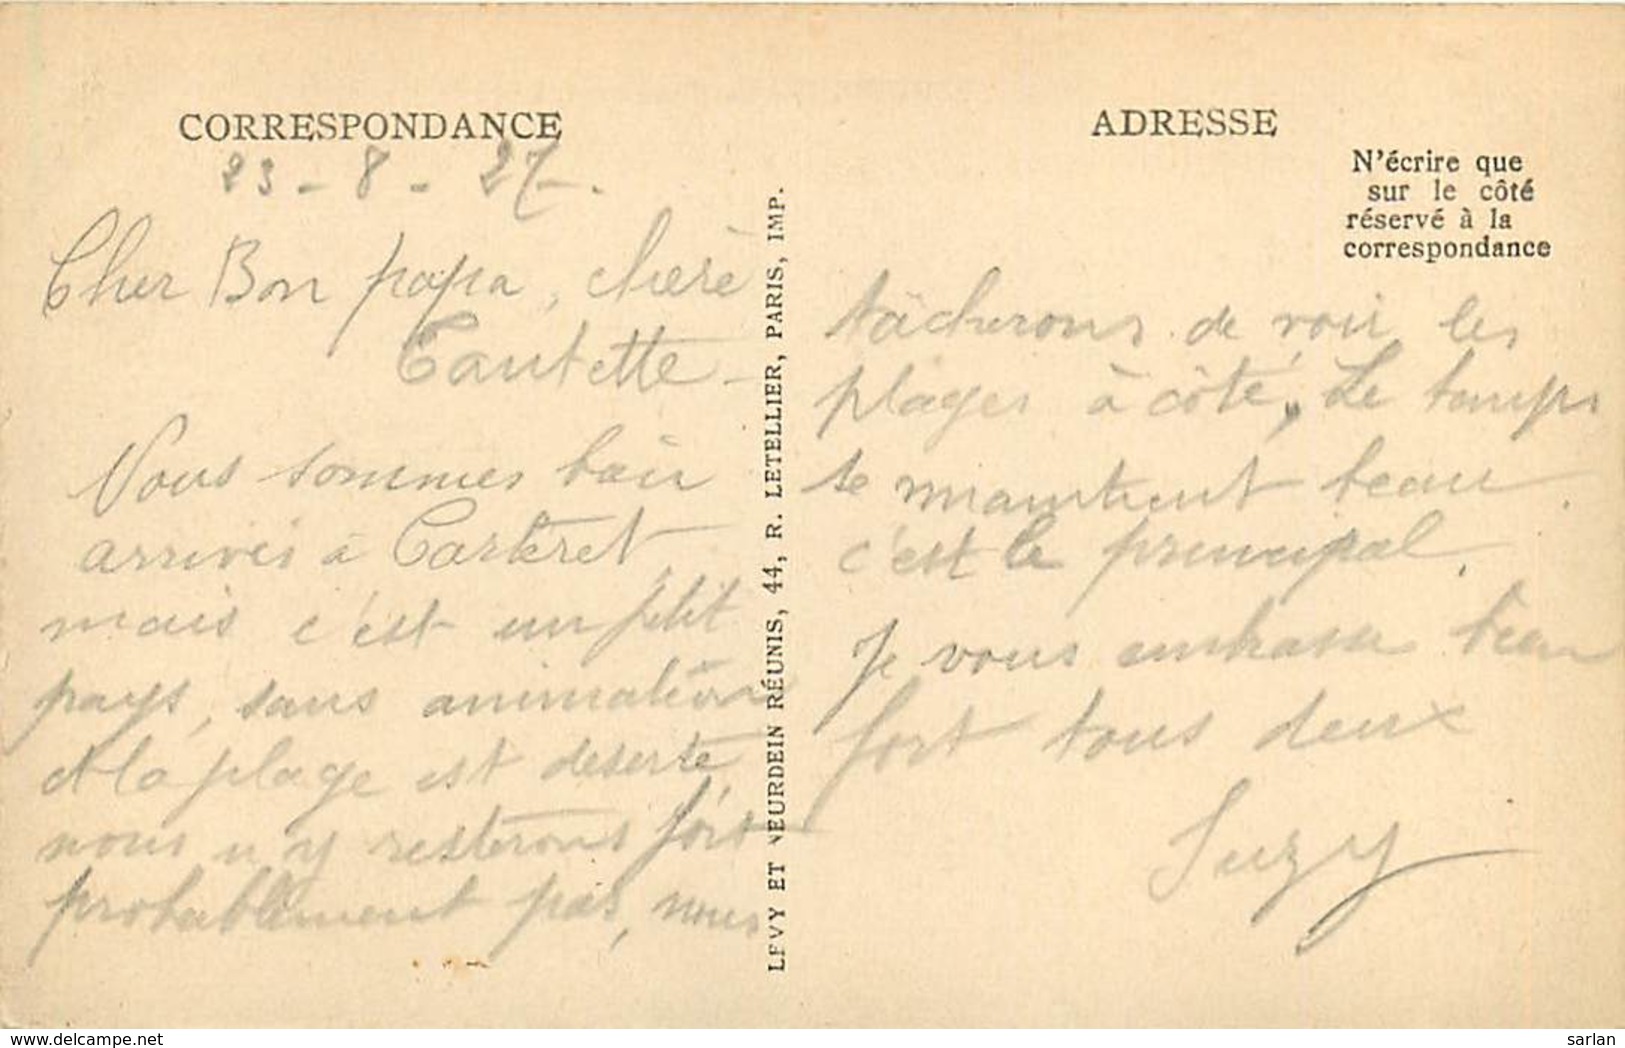 CORRESPONDANCE
23 - 8 - 27 -.
Cher Bon papa, chère
Tantette -
Nous sommes bien
arrivés à Carteret,
mais c'est un petit
pays, sans animation
et la plage est deserte,
nous n'y resterons fort
probablement pas, nous
LEVY ET NEURDEIN RÉUNIS, 44, R. LETELLIER, PARIS, IMP.
ADRESSE
N'écrire que
sur le côté
réservé à la
correspondance
tâcherons de voir les
plages à côté. Le temps
se maintient beau.
c'est le principal.
Je vous embrasse bien
fort tous deux
Suzy
www.delcampe.net
sarlan